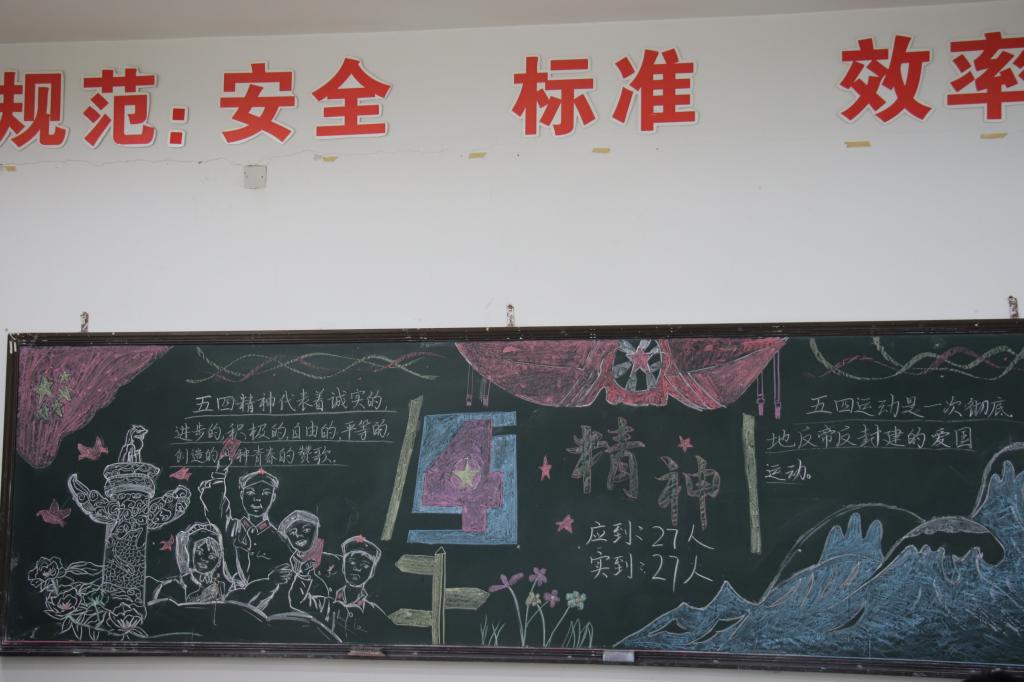 规范:安全 标准 效率
五四精神代表着诚实的,
进步的,积极的,自由的,平等的,
创造的 种青春的赞歌.
54
精神
应到:27人
实到:27人
五四运动是一次彻底
地反帝反封建的爱国
运动。